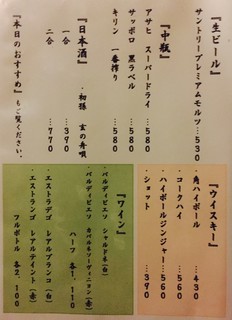 『生ビール』
サントリープレミアムモルツ…530
『中瓶』
アサヒ スーパードライ…580
サッポロ 黒ラベル…580
キリン 一番搾り…580
『日本酒』
・初孫 玄の舟唄
一合…390
二合…770
『本日のおすすめ』もご覧ください。
『ウイスキー』
・角ハイボール…430
・コークハイ…560
・ハイボールジンジャー…560
・ショット…390
『ワイン』
・バルディビエソ シャルドネ(白)
・バルディビエソ カバルネソーヴィニョン(赤)
ハーフ 各1,110
・エストラテゴ レアルブランコ(白)
・エストランゴ レアルティント(赤)
フルボトル 各2,100